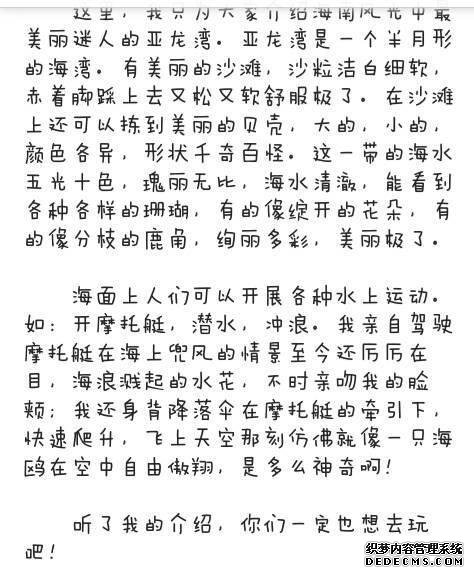 这里，我只为大家介绍海南风光中最
美丽迷人的亚龙湾。亚龙湾是一个半月形
的海湾。有美丽的沙滩，沙粒洁白细软，
赤着脚踩上去又松又软舒服极了。在沙滩
上还可以拣到美丽的贝壳，大的，小的，
颜色各异，形状千奇百怪。这一带的海水
五光十色，瑰丽无比，海水清澈，能看到
各种各样的珊瑚，有的像绽开的花朵，有
的像分枝的鹿角，绚丽多彩，美丽极了。
海面上人们可以开展各种水上运动。
如：开摩托艇，潜水，冲浪。我亲自驾驶
摩托艇在海上兜风的情景至今还历历在
目，海浪溅起的水花，不时亲吻我的脸
颊；我还身背降落伞在摩托艇的牵引下，
快速爬升，飞上天空那刻仿佛就像一只海
鸥在空中自由傲翔，是多么神奇啊！
听了我的介绍，你们一定也想去玩
吧！
织梦内容管理系统
DEDECMS.COM